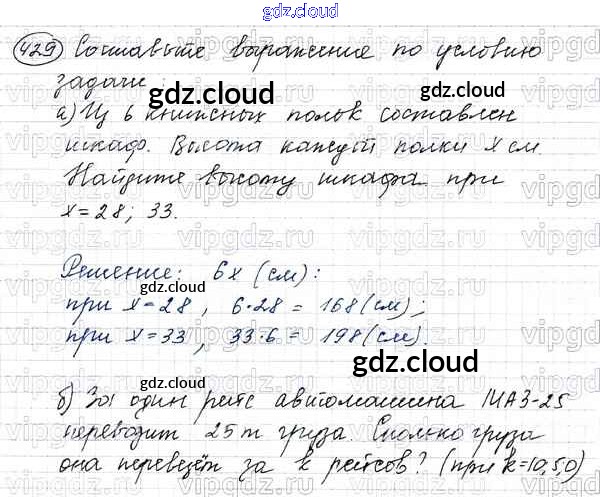 gdz.cloud
429 Составьте выражение по условию
задачи:
gdz.cloud
а) Из 6 книжных полок составлен
шкаф. Высота каждой полки x см.
Найдите высоту шкафа при
x=28; 33.
Решение: 6x (см):
при x=28, 6·28=168(см);
при x=33, 33·6=198(см).
gdz.cloud
б) За один рейс автомашина МАЗ-25
перевозит 25 т груза. Сколько груза
она перевезёт за k рейсов? (при k=10,50)
gdz.cloud